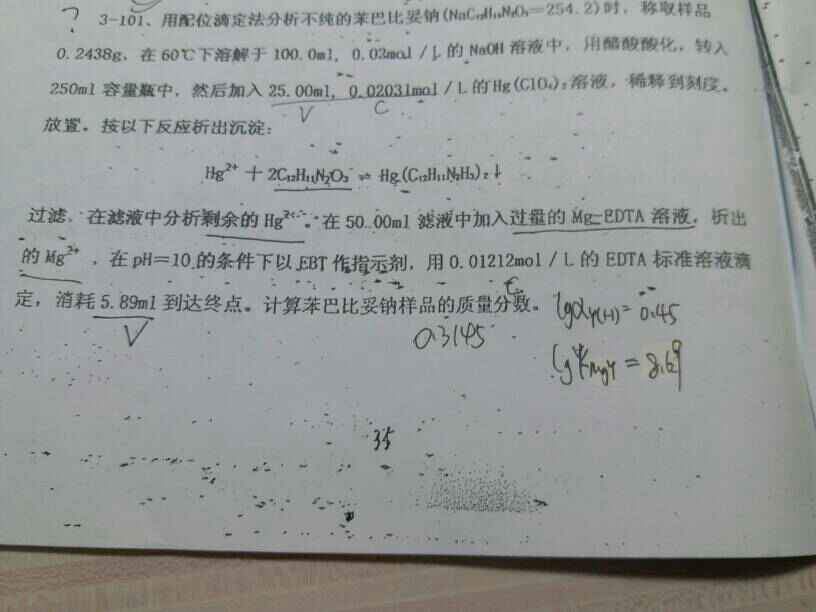 ?
3-101、用配位滴定法分析不纯的苯巴比妥钠(NaC₁₂H₁₁N₂O₃=254.2)时，称取样品
0.2438g，在60℃下溶解于100.0ml，0.02mol/L的NaOH溶液中，用醋酸酸化，转入
250ml容量瓶中，然后加入25.00ml，0.02031mol/L的Hg(ClO₄)₂溶液，稀释到刻度。
V C
放置。按以下反应析出沉淀：
Hg²⁺＋2C₁₂H₁₁N₂O₃⇌Hg(C₁₂H₁₁N₂H₃)₂↓
过滤、在滤液中分析剩余的Hg²⁺。在50.00ml滤液中加入过量的Mg-EDTA溶液，析出
的Mg²⁺，在pH=10的条件下以EBT作指示剂，用0.01212mol/L的EDTA标准溶液滴
定，消耗5.89ml到达终点。计算苯巴比妥钠样品的质量分数。
V 0.3145
lgαY(H)=0.45
lgK'MgY=8.69
35